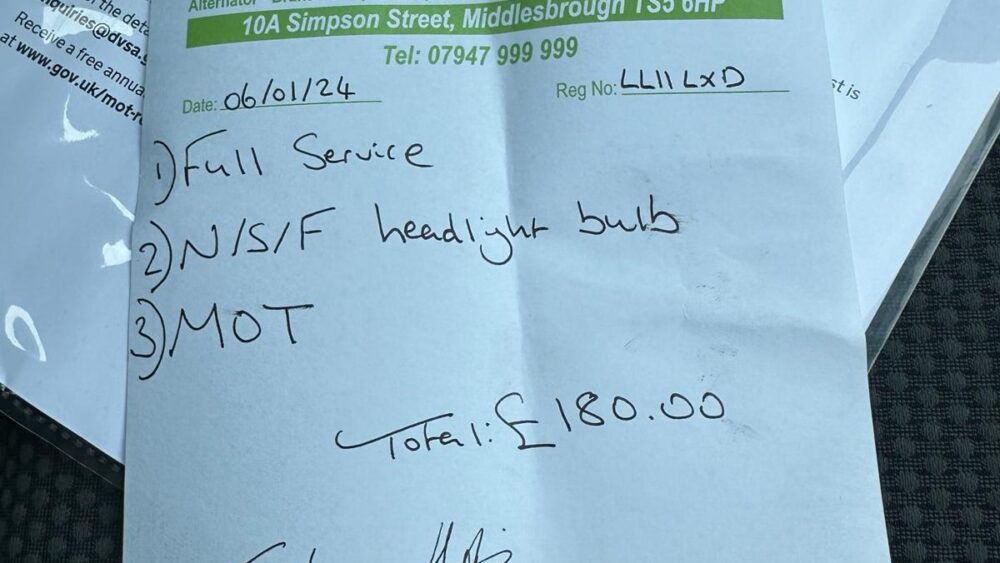 of the deta
nquiries@dvsa.g
Receive a free annua
at www.gov.uk/mot-r
st is
Alternator
10A Simpson Street, Middlesbrough TS5 6HP
Tel: 07947 999 999
Date: 06/01/24
Reg No: LL11 LXD
1) Full Service
2) N/S/F headlight bulb
3) MOT
Total: £180.00